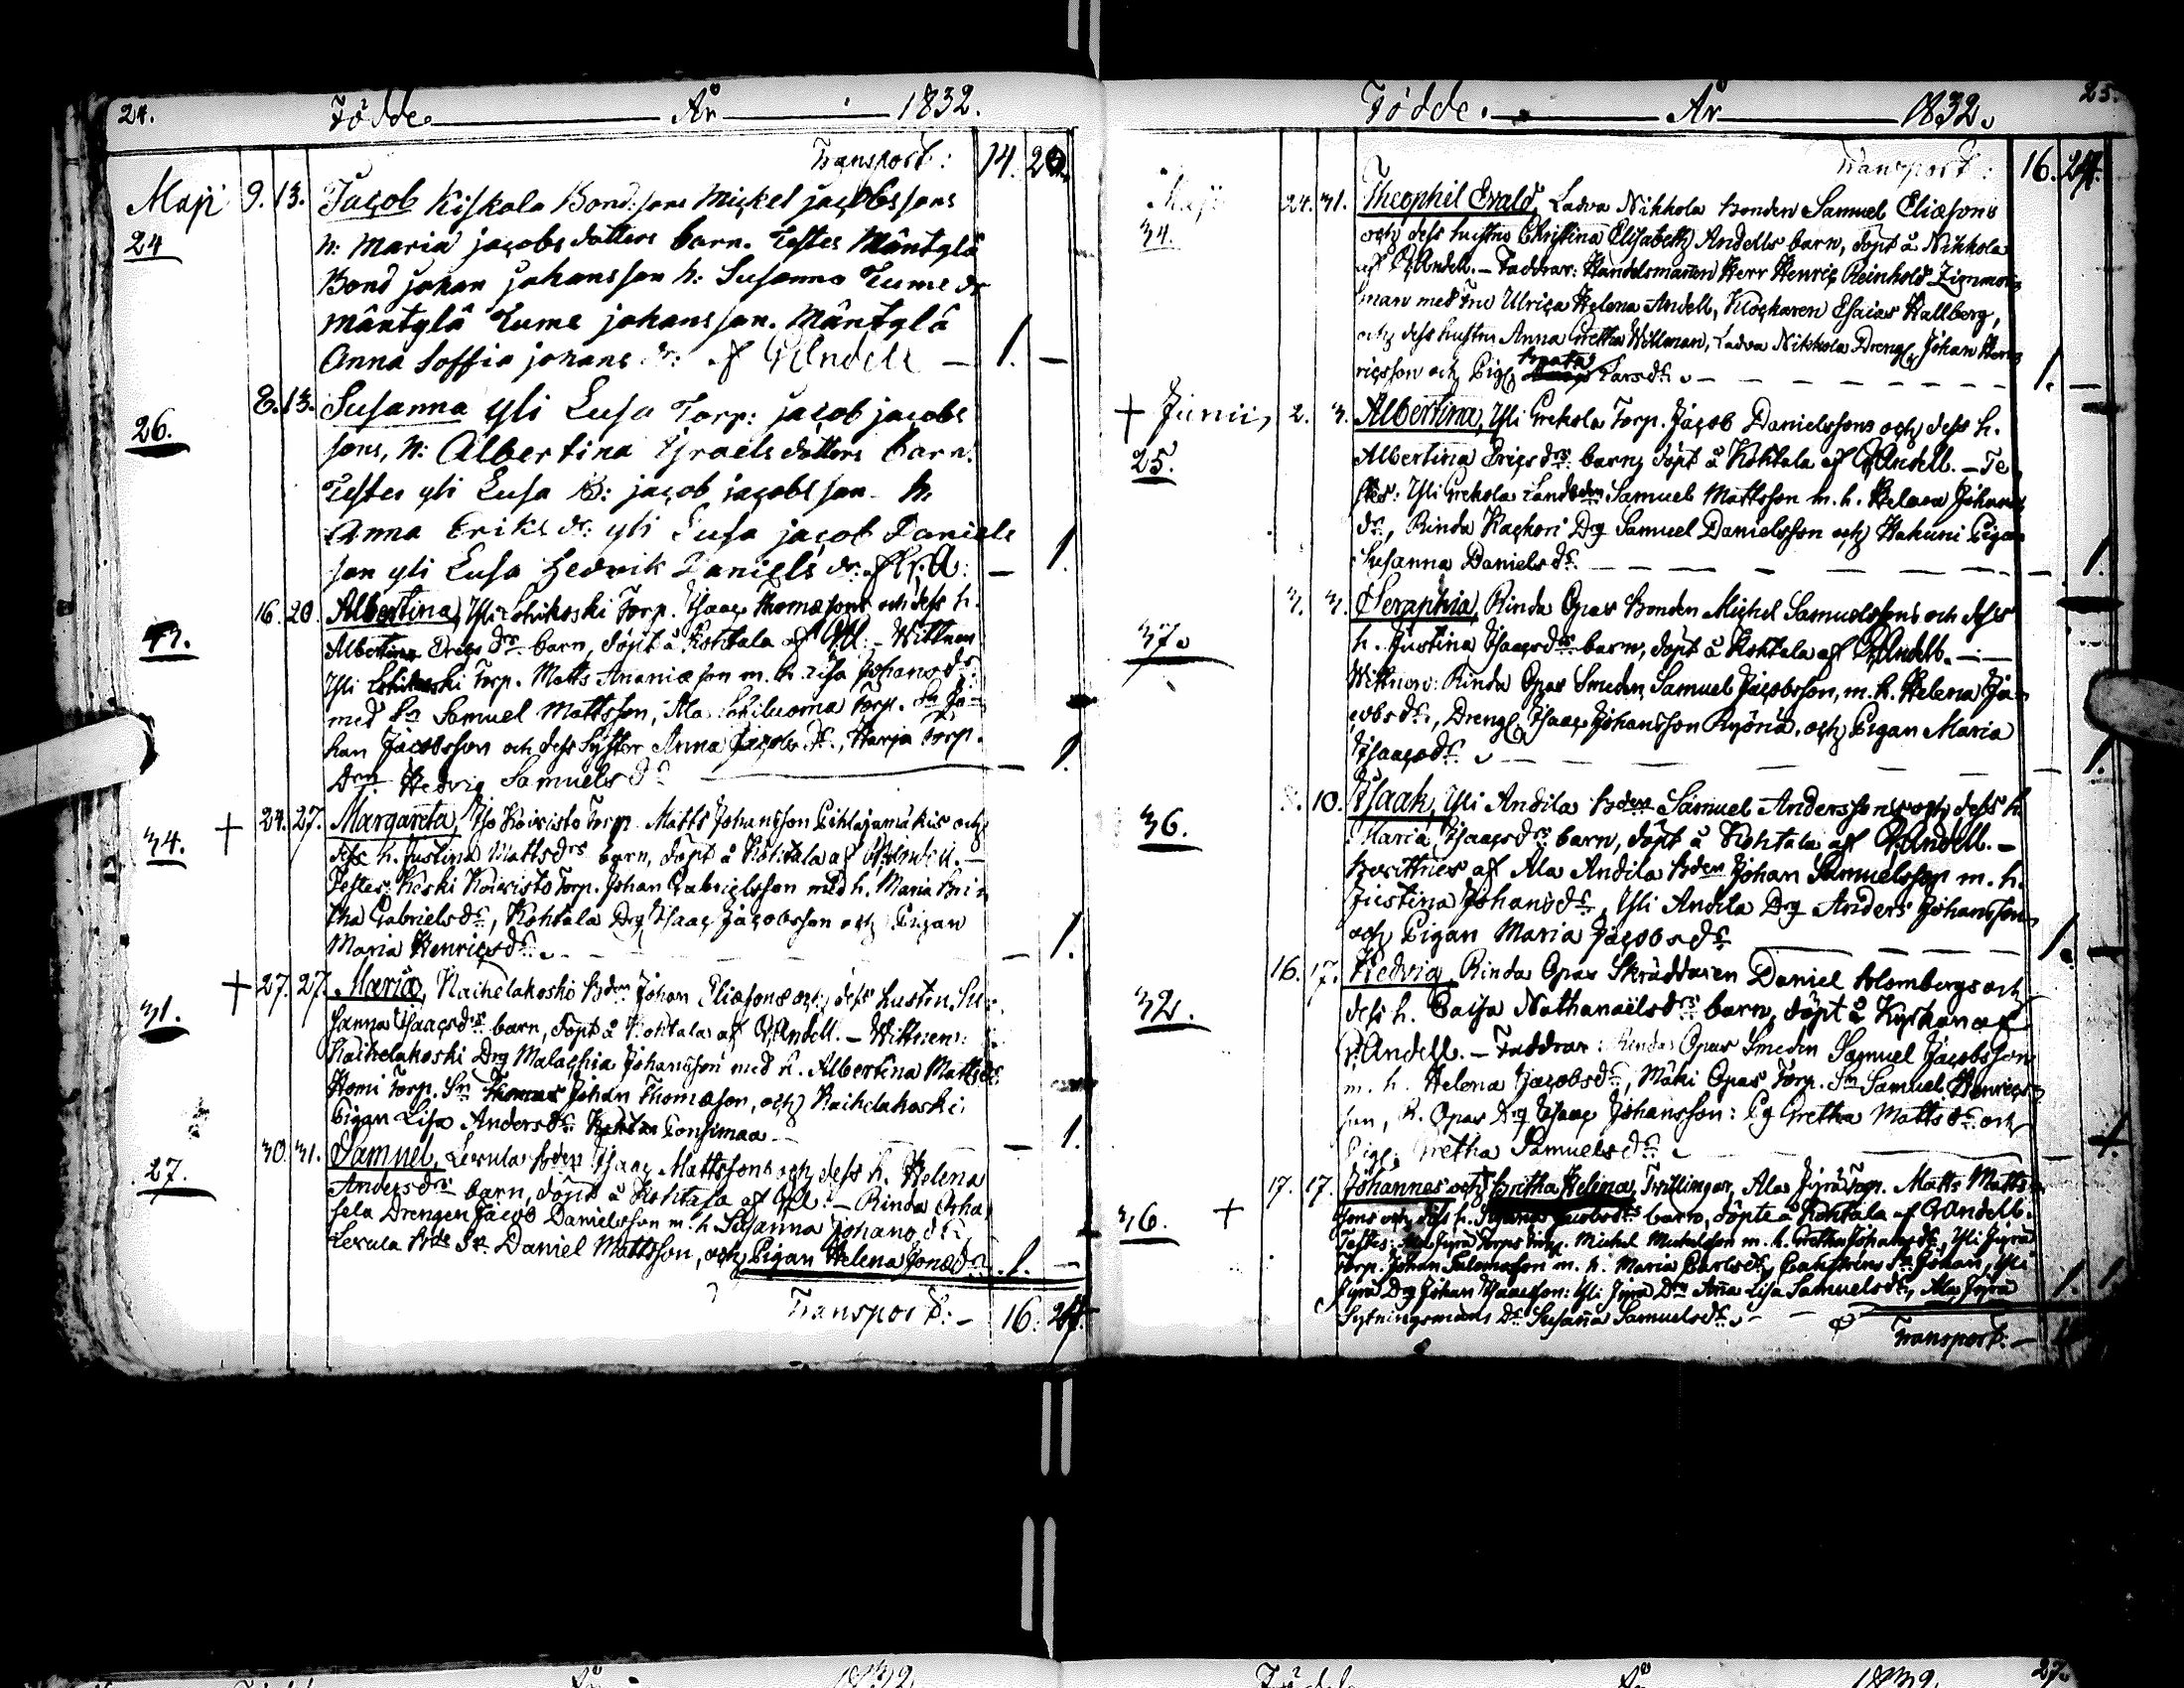 24. Födde. År 1832.
Transport: 14. 20.
Maji 9. 13. Jacob Kiskola Bond: sons Mickel jacobssons
24 h: Maria jacobsdotters barn. Testes Mäntylä
Bond johan johansson h: Susanna Tume dr
Mäntylä Tume johansson. Mäntylä
Anna Soffia johans dr: af G Andell — 1. —
8. 13. Susanna yli Lusa Torp: jacob jacobs
26. sons, h: Albertina Israels dotters barn.
Testes yli Lusa B: jacob jacobsson h.
Anna Eriks dr: yli Lusa jacob Daniels
son yli Lusa Hedvik Daniels dr. af G. A: — 1.
16. 20. Albertina, Yli Torp. Isaac Thomæsons och dess h.
Albertina Erics drs barn, döpt å Kohtala af GA: — Wittnen
Yli Torp. Matts Ananiæson m. h. Lisa Johans dr:
med Sn Samuel Mattsson, Ala Torp. Sn Jo-
han Jacobsson och dess Syster Anna Jacobs dr, Harja Torp.
Drn Hedvig Samuels dr — 1.
34. + 24. 27. Margareta, Iso Koivisto Torp. Matts Johansson Pihlajamäkis och
dess h. Justina Matts drs barn, döpt å Kohtala af G Andell. —
Testes: Koski Koivisto Torp. Johan Gabrielsson med h. Maria Bri
tha Gabriels dr, Kohtala Drg Isaac Jacobsson och Pigan
Maria Henrics dr — 1.
31. + 27. 27. Maria, Kaihelakoski Bden Johan Eliæsons och dess hustru Su-
sanna Isaacs drs barn, döpt å Kohtala af G Andell. — Wittnen:
Kaihelakoski Drg Malachia Johansson med h. Albertina Matts dr
Homi Torp. Sn Johan Thomæson, och Kaihelakoski
Pigan Lisa Anders dr Ponsimaa — 1.
30. 31. Samuel, Lexula Bden Isaac Mattssons och dess h. Helena
27. Anders drs barn, döpt å Kohtala af GA: — Rinda
Drengen Jacob Danielsson m. h. Susanna Johans dr,
Lexula Bds Sn Daniel Mattsson, och Pigan Helena Jonæ dr 1. —
Transport: — 16. 24.
25.
Födde. År 1832.
Transport: 16. 24.
Maji 24. 31. Theophil Evald, Ladva Nikkola Bonden Samuel Eliæsons
34. och dess hustru Christina Elisabeth Andells barn, döpt å Nikkola
af G Andell. — Faddrar: Handelsmannen Herr Henric Reinhold
man med Fru Ulrica Helena Andell, Klockaren Esaias Hallberg,
och dess hustru Anna Gretha Willman, Ladva Nikkola Dreng Johan Hen
ricsson och Pig Beata Lars dr — 1. —
+ Junii, 2. 3. Albertina, Yli Grekola Torp. Jacob Danielssons och dess h.
25. Albertina Erics drs barn, döpt å Kohtala af G Andell. — Te
stes: Yli Grekola Landbden Samuel Mattsson m. h. Helena Johans
dr, Rinda Kackori Drg Samuel Danielsson och Hakuni Pigan
Susanna Daniels dr — 1.
3. 3. Seraphia, Rinda Opas Bonden Michel Samuelssons och dess
37. h. Justina Isaacs drs barn, döpt å Kohtala af G Andell. —
Wittnen: Rinda Opas Smeden Samuel Jacobsson, m. h. Helena Ja-
cobs dr, Dreng Isaac Johansson Ryöriä, och Pigan Maria
Isaacs dr — 1.
8. 10. Isaak, Yli Andila Bden Samuel Anderssons och dess h.
36. Maria Isaacs drs barn, döpt å Kohtala af G Andell. —
Bevittnes af Ala Andila Bden Johan Samuelsson m. h.
Justina Johans dr, Yli Andila Drg Anders Johansson
och Pigan Maria Jacobs dr — 1. —
16. 17. Hedvig, Rinda Opas Skräddaren Daniel Holmbergs och
32. dess h. Caisa Nathanaëls drs barn, döpt å Kyrkan af
G Andell. — Faddrar: Rinda Opas Smeden Samuel Jacobsson
m. h. Helena Jacobs dr, Mäki Opas Torp. Sn Samuel Henrics-
son, R. Opas Drg Isaac Johansson: Pg Gretha Matts dr och
Pig. Gretha Samuels dr — 1.
36. + 17. 17. Johannes och Britha Helena, Twillingar, Ala Jyrä Torp. Matts Matts-
sons och dess h. Susanna Jacobs drs barn, döpte å Kohtala af G Andell.
Testes: Ala Jyrä Torp. Michel Michelsson m. h. Gretha Johans dr, Yli Jyrä
Torp. Johan Salomonson m. h. Maria Carls dr, Sn Johan, Yli
Jyrä Drg Johan Isaacsson: Yli Jyrä Drn Anna Lisa Samuels dr, Ala Jyrä 1. 1.
Sytningsmans Dr Susanna Samuels dr
Transport: —